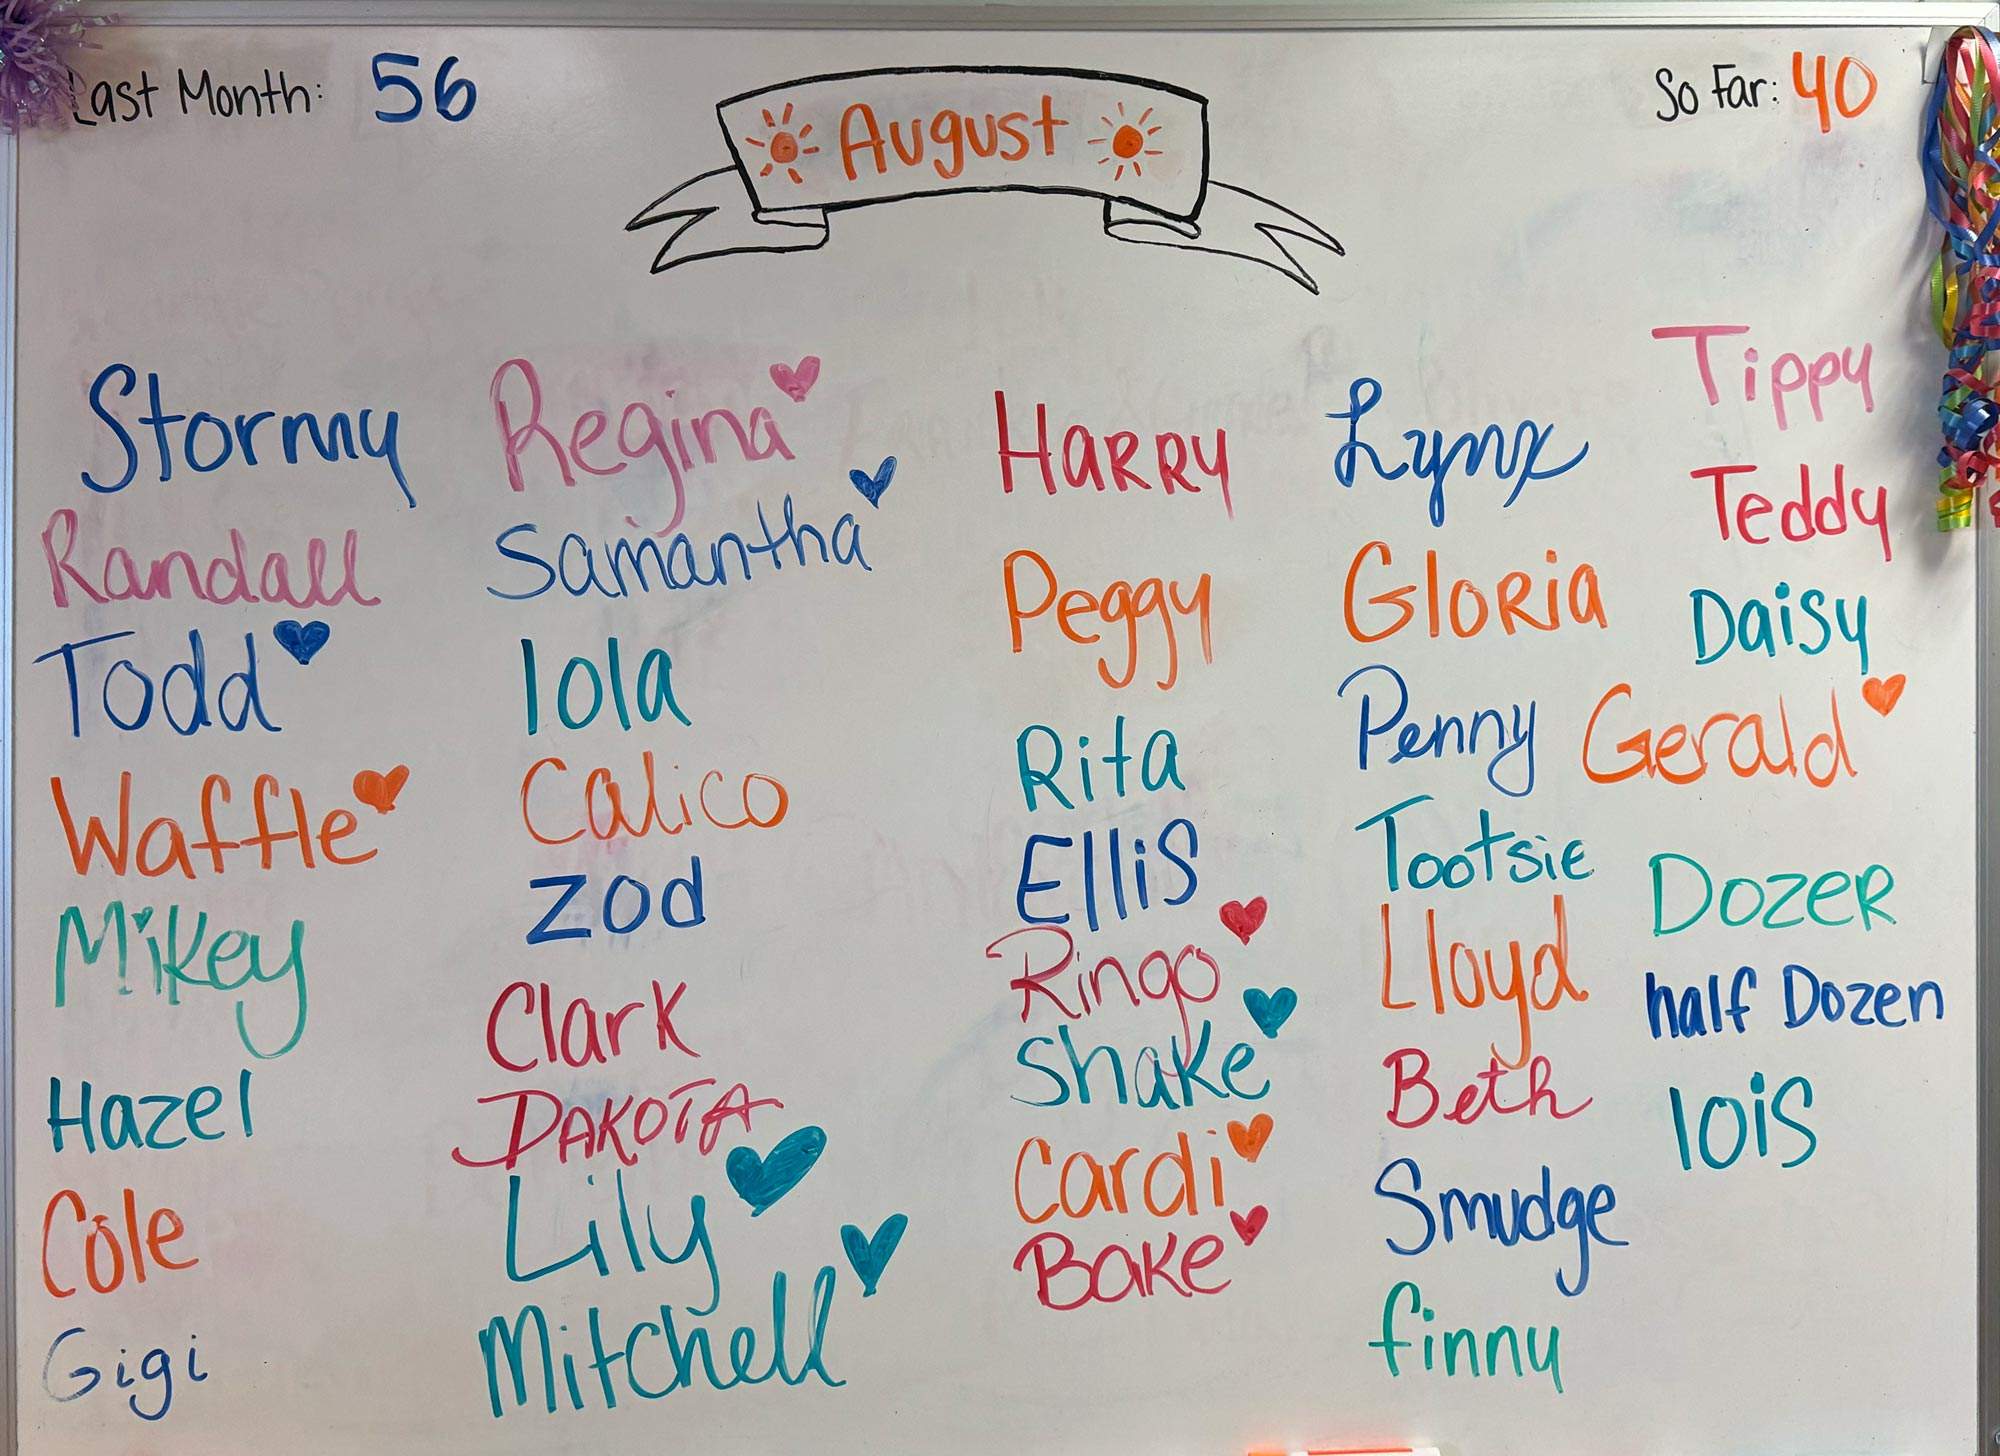 Last Month: 56
August
So Far: 40
Stormy
Randall
Todd
Waffle
Mikey
Hazel
Cole
Gigi
Regina
Samantha
lola
Calico
Zod
Clark
DAKOTA
Lily
Mitchell
HaRRy
Peggy
Rita
Ellis
Ringo
Shake
Cardi
Bake
Lynx
GloRia
Penny
Tootsie
Lloyd
Beth
Smudge
finny
Tippy
Teddy
Daisy
Gerald
DozeR
half Dozen
lois